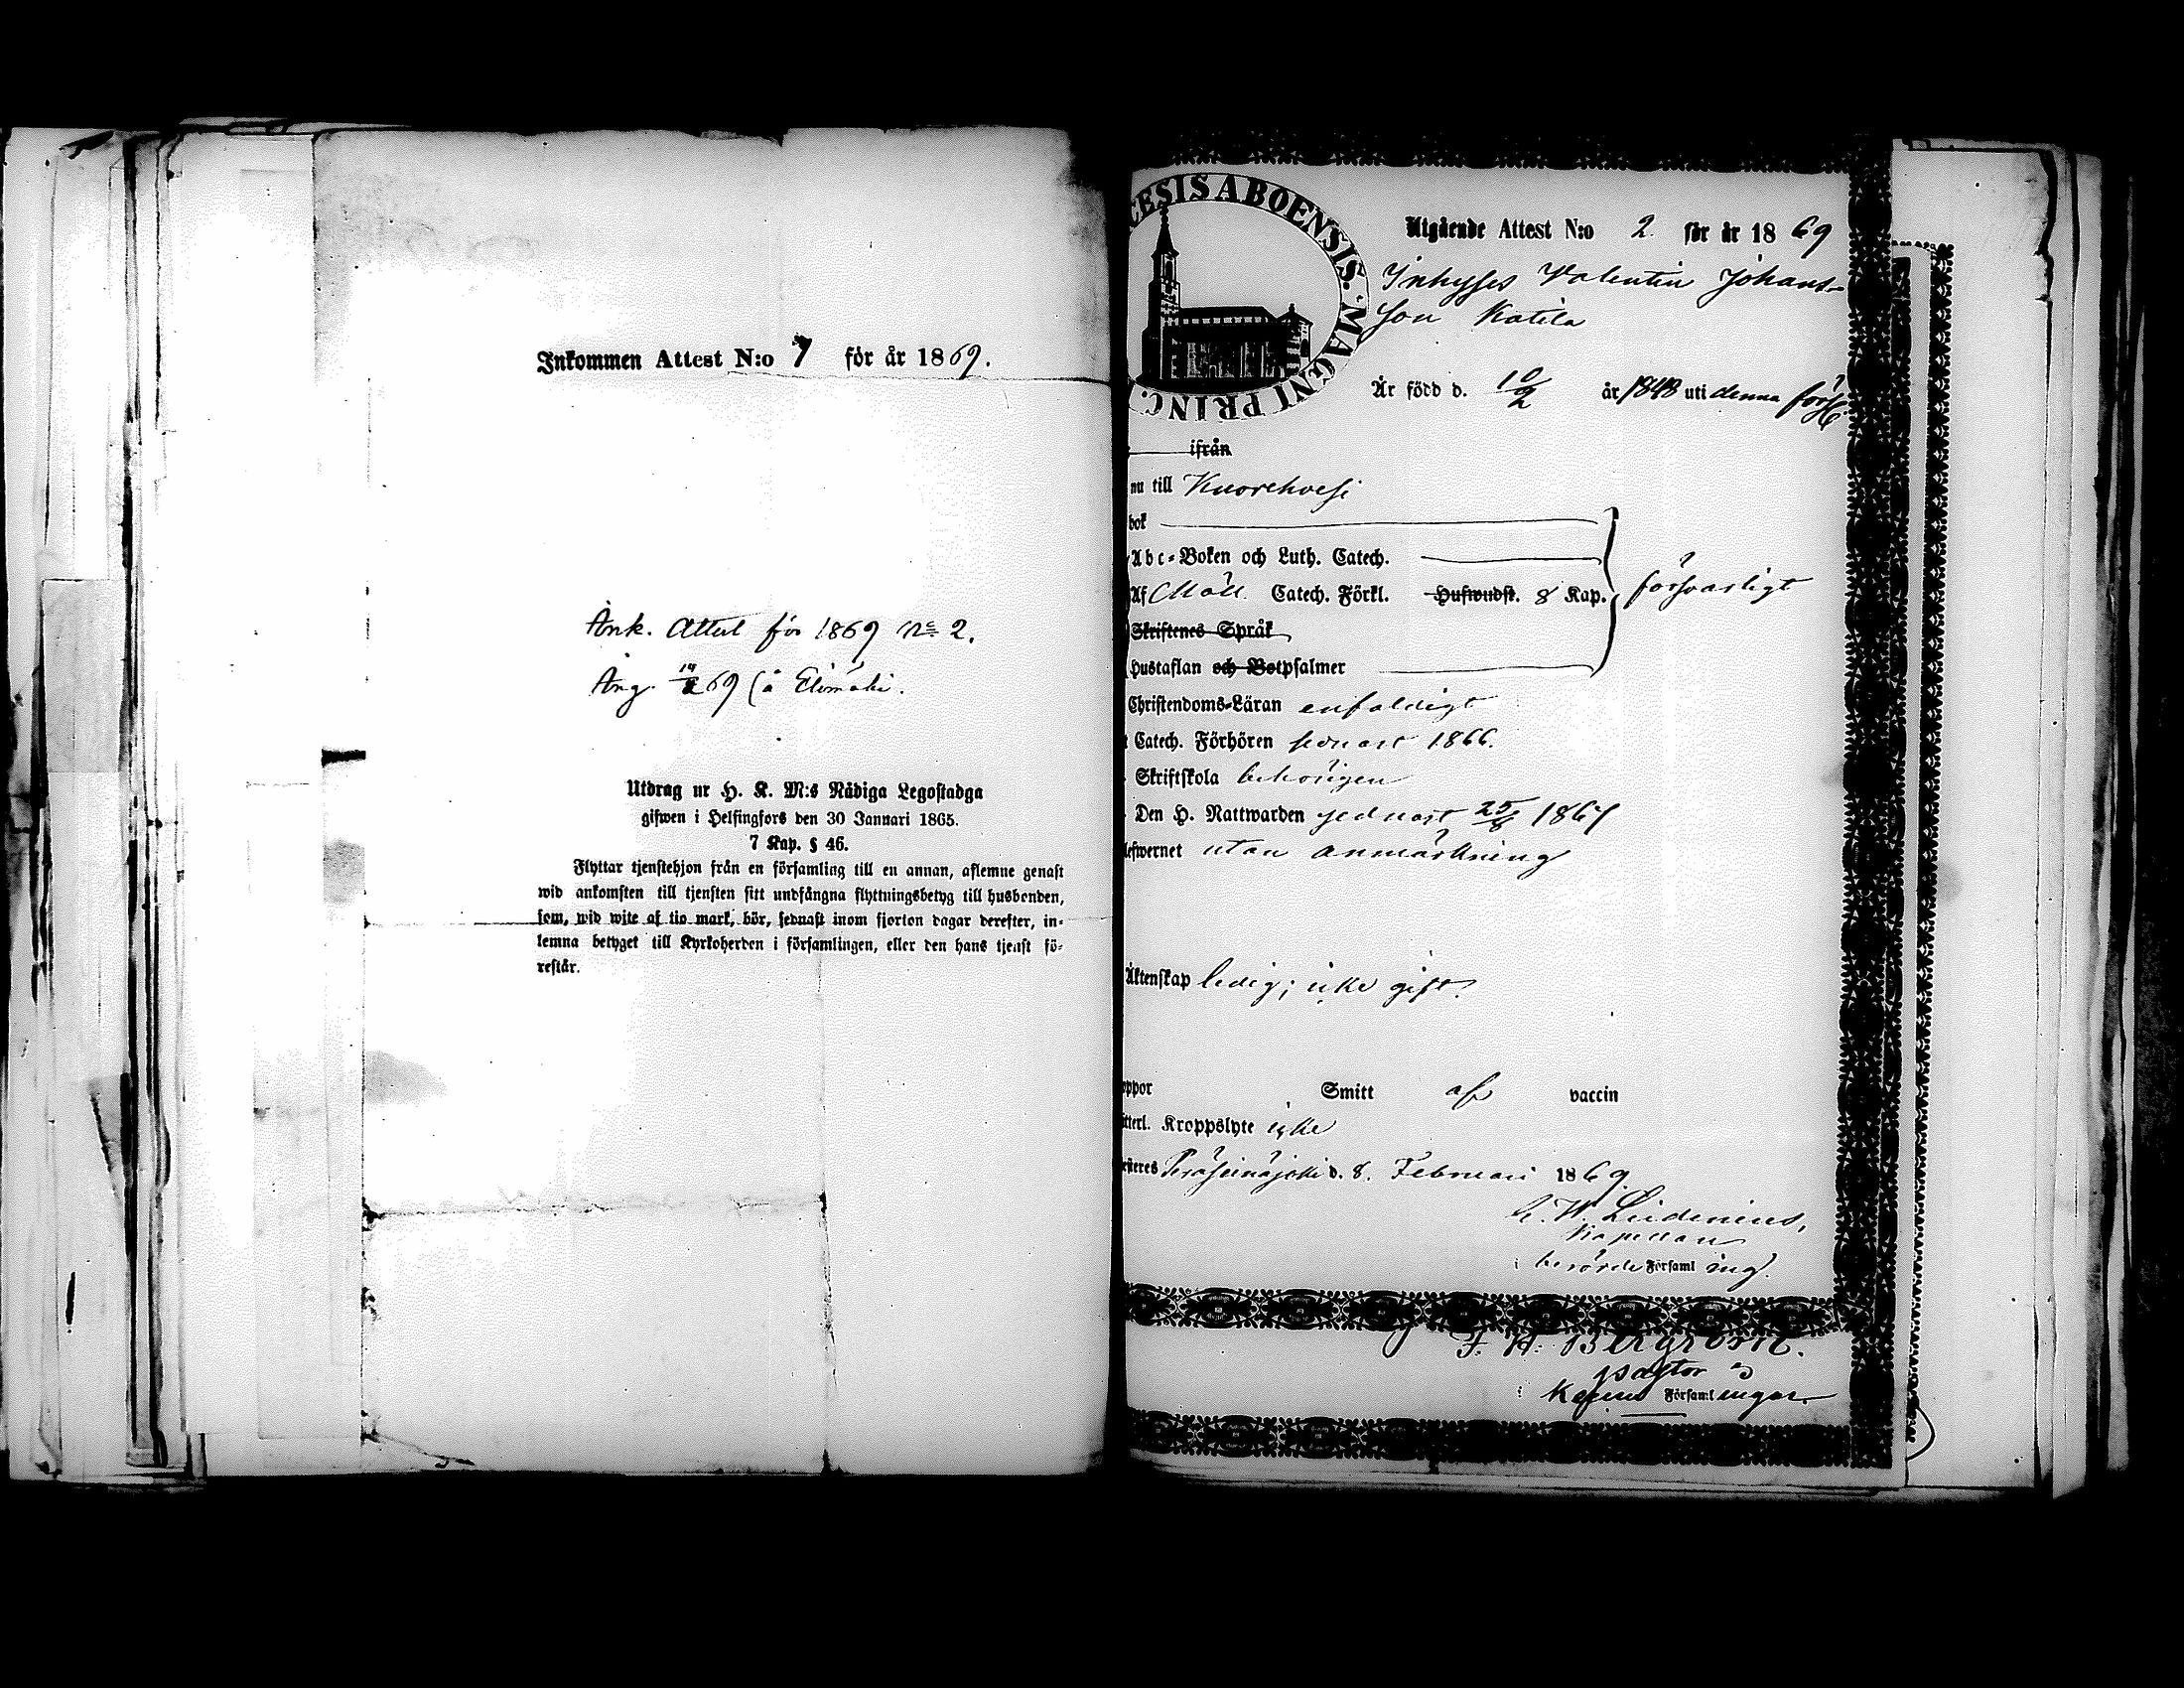 Inkommen Attest N:o 7 för år 1869.
Ank. Attest för 1869 No 2.
Ang. 14/2 69 (å Elimäki.
Utdrag ur H. K. M:s Nådiga Legostadga
gifwen i Helsingfors den 30 Januari 1865.
7 Kap. § 46.
Flyttar tjenstehjon från en församling till en annan, aflemne genast
wid ankomsten till tjensten sitt undfångna flyttningsbetyg till husbonden,
som, wid wite af tio mark, bör, sednast inom fjorton dagar derefter, in-
lemna betyget till Kyrkoherden i församlingen, eller den hans tjenst fö-
restår.
CESIS ABOENSIS. MAGNI PRINC.
Utgående Attest N:o 2 för år 1869
Inhyses Valentin Johans-
son Katila
Är född d. 10/2 år 1848 uti denna förs
ifrån
nu till Kuorehvesi
bok
Abc-Boken och Luth. Catech.
Af Möll. Catech. Förkl. Hufwudst. 8 Kap. försvarligt
Skriftenes Språk
Hustaflan och Botpsalmer
Christendoms-Läran enfaldigt
Catech. Förhören sednast 1866.
Skriftskola behörigen
Den H. Nattwarden sednast 25/8 1867
lefwernet utan anmärkning
Äktenskap ledig; icke gift.
oppor Smitt af vaccin
tterl. Kroppslyte icke
esteres Peräseinäjoki d. 8. Februari 1869.
Lindenius,
Kapellan
i berörde Församling.
F. H. Bergroth.
pastor
i Församlingar.